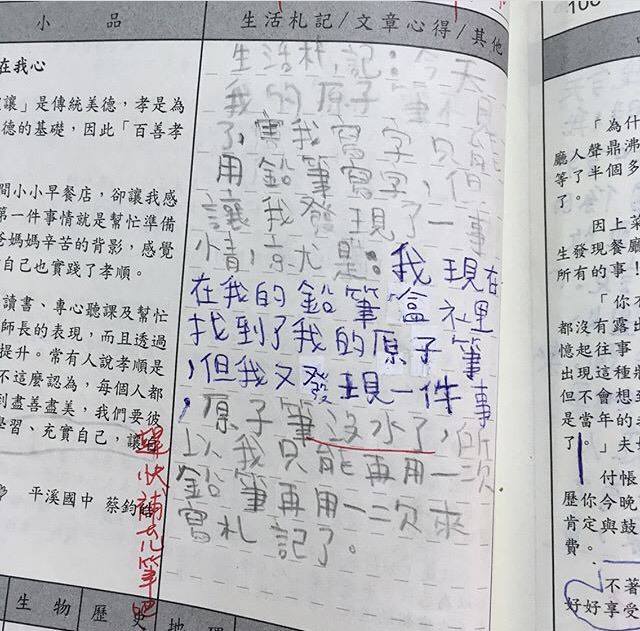 小品
在我心
讓」是傳統美德，孝是為
德的基礎，因此「百善孝
間小小早餐店，卻讓我感
第一件事情就是幫忙準備
爸媽媽辛苦的背影，感覺
自己也實踐了孝順。
讀書、專心聽課及幫忙
師長的表現，而且透過
提升。常有人說孝順是
不這麼認為，每個人都
到盡善盡美，我們要彼
學習、充實自己，讓自
平溪國中 蔡鈞
生活札記/文章心得/其他
生活札記：今天
我的原子筆不見
了，害我寫字只能
用鉛筆寫字，但
讓我發現了一事
情，就是：我現在
在我的鉛筆盒裡
找到了我的原子筆
，但我又發現一件事
，原子筆沒水了，所
以我只能再用一次
鉛筆再用一二次來
寫札記了。
趕快補充筆吧
生物
歷史
地理
100
「為什
廳人聲鼎沸
等了半個多
了。
因上菜
生發現餐廳
所有的事！
「你
都沒有露出
憶起往事
出現這種
但不會想到
是當年的
了。」夫
付帳
歷你今晚
肯定與鼓
費。
不著
好好享受